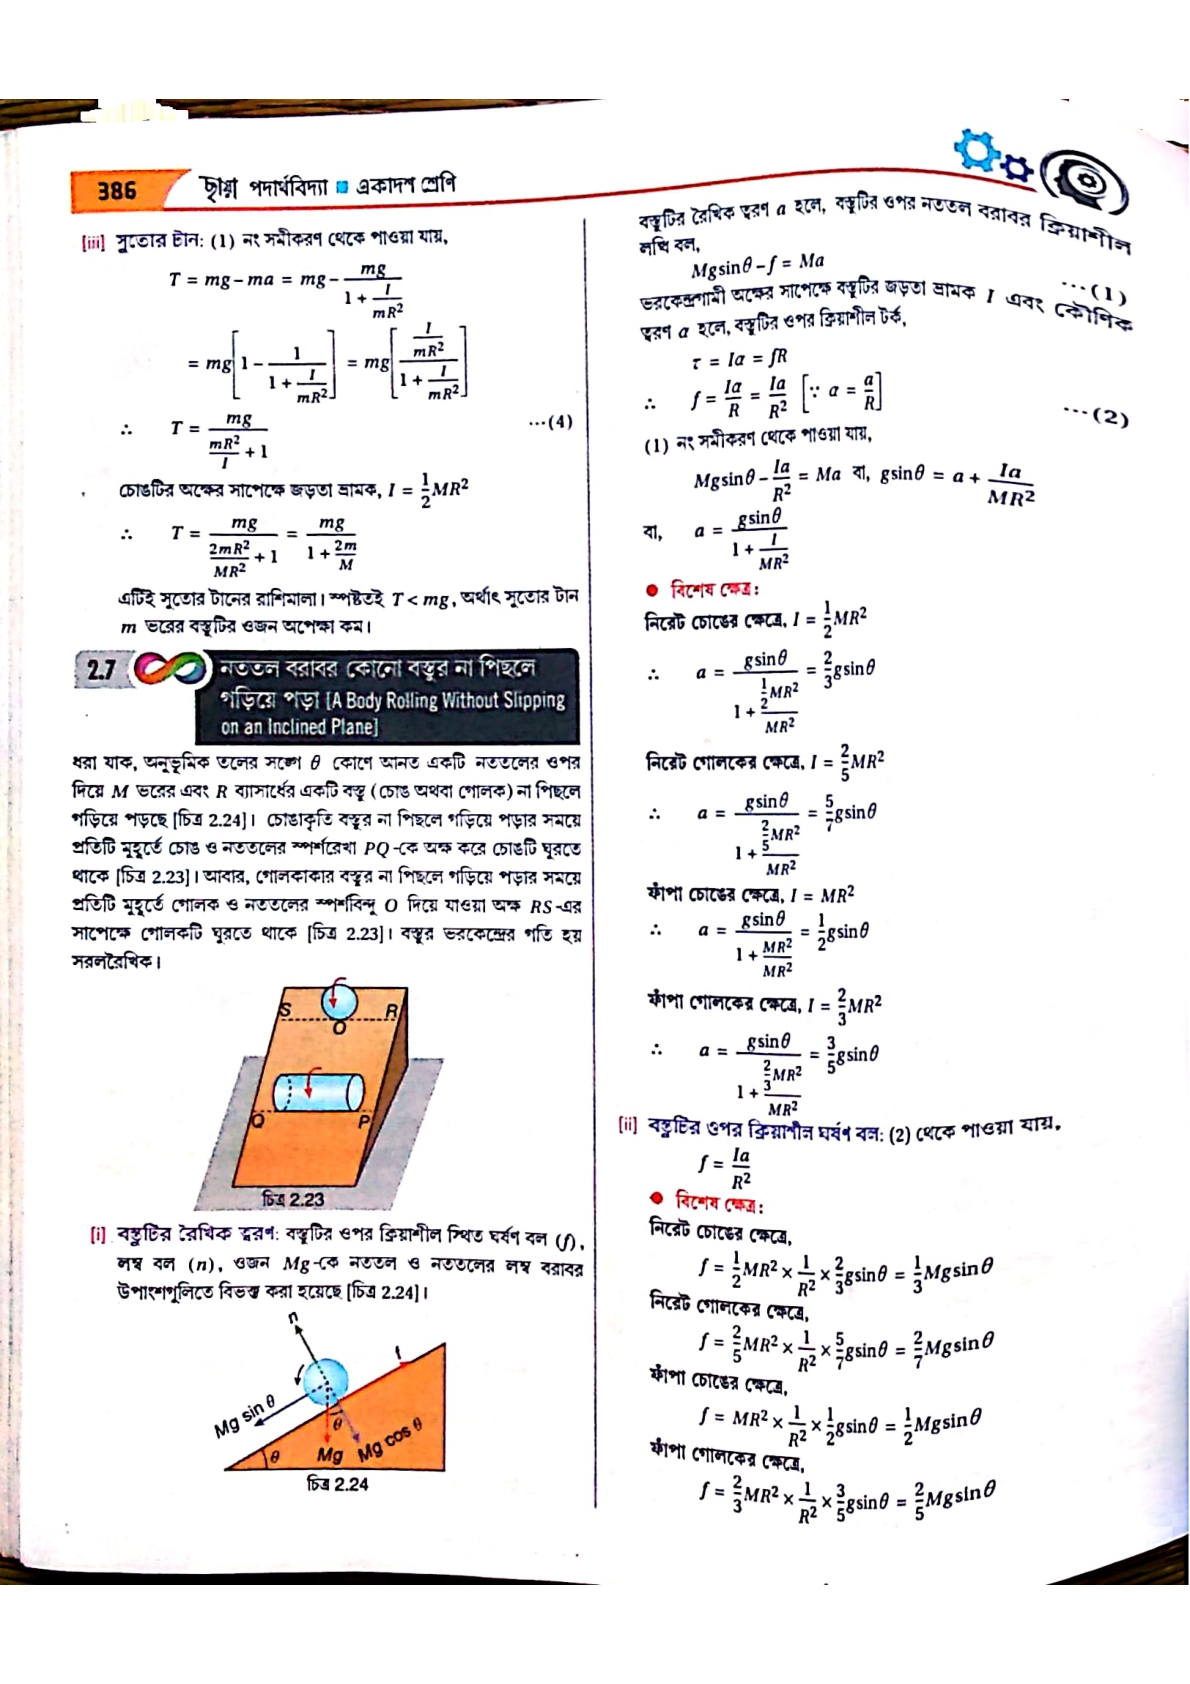 386
ছায়া পদার্থবিদ্যা ■ একাদশ শ্রেণি
[iii] সুতোর টান: (1) নং সমীকরণ থেকে পাওয়া যায়,
T = mg – ma = mg – mg / (1 + I/mR²)
= mg[1 – 1/(1 + I/mR²)] = mg[(I/mR²)/(1 + I/mR²)]
∴ T = mg / (mR²/I + 1) ···(4)
চোঙটির অক্ষের সাপেক্ষে জড়তা ভ্রামক, I = 1/2 MR²
∴ T = mg / (2mR²/MR² + 1) = mg / (1 + 2m/M)
এটিই সুতোর টানের রাশিমালা। স্পষ্টতই T < mg, অর্থাৎ সুতোর টান
m ভরের বস্তুটির ওজন অপেক্ষা কম।
2.7 নততল বরাবর কোনো বস্তুর না পিছলে
গড়িয়ে পড়া [A Body Rolling Without Slipping
on an Inclined Plane]
ধরা যাক, অনুভূমিক তলের সঙ্গে θ কোণে আনত একটি নততলের ওপর
দিয়ে M ভরের এবং R ব্যাসার্ধের একটি বস্তু (চোঙ অথবা গোলক) না পিছলে
গড়িয়ে পড়ছে [চিত্র 2.24]। চোঙাকৃতি বস্তুর না পিছলে গড়িয়ে পড়ার সময়ে
প্রতিটি মুহূর্তে চোঙ ও নততলের স্পর্শরেখা PQ-কে অক্ষ করে চোঙটি ঘুরতে
থাকে [চিত্র 2.23]। আবার, গোলকাকার বস্তুর না পিছলে গড়িয়ে পড়ার সময়ে
প্রতিটি মুহূর্তে গোলক ও নততলের স্পর্শবিন্দু O দিয়ে যাওয়া অক্ষ RS-এর
সাপেক্ষে গোলকটি ঘুরতে থাকে [চিত্র 2.23]। বস্তুর ভরকেন্দ্রের গতি হয়
সরলরৈখিক।
S R
O
Q P
চিত্র 2.23
[i] বস্তুটির রৈখিক ত্বরণ: বস্তুটির ওপর ক্রিয়াশীল স্থিত ঘর্ষণ বল (f),
লম্ব বল (n), ওজন Mg-কে নততল ও নততলের লম্ব বরাবর
উপাংশগুলিতে বিভক্ত করা হয়েছে [চিত্র 2.24]।
n
f
Mg sin θ
θ
θ Mg Mg cos θ
চিত্র 2.24
বস্তুটির রৈখিক ত্বরণ a হলে, বস্তুটির ওপর নততল বরাবর ক্রিয়াশীল
লব্ধি বল,
Mgsinθ – f = Ma ···(1)
ভরকেন্দ্রগামী অক্ষের সাপেক্ষে বস্তুটির জড়তা ভ্রামক I এবং কৌণিক
ত্বরণ α হলে, বস্তুটির ওপর ক্রিয়াশীল টর্ক,
τ = Iα = fR
∴ f = Iα/R = Ia/R² [∵ α = a/R] ···(2)
(1) নং সমীকরণ থেকে পাওয়া যায়,
Mgsinθ – Ia/R² = Ma বা, gsinθ = a + Ia/MR²
বা, a = gsinθ / (1 + I/MR²)
● বিশেষ ক্ষেত্র:
নিরেট চোঙের ক্ষেত্রে, I = 1/2 MR²
∴ a = gsinθ / (1 + (1/2 MR²)/MR²) = 2/3 gsinθ
নিরেট গোলকের ক্ষেত্রে, I = 2/5 MR²
∴ a = gsinθ / (1 + (2/5 MR²)/MR²) = 5/7 gsinθ
ফাঁপা চোঙের ক্ষেত্রে, I = MR²
∴ a = gsinθ / (1 + MR²/MR²) = 1/2 gsinθ
ফাঁপা গোলকের ক্ষেত্রে, I = 2/3 MR²
∴ a = gsinθ / (1 + (2/3 MR²)/MR²) = 3/5 gsinθ
[ii] বস্তুটির ওপর ক্রিয়াশীল ঘর্ষণ বল: (2) থেকে পাওয়া যায়,
f = Ia/R²
● বিশেষ ক্ষেত্র:
নিরেট চোঙের ক্ষেত্রে,
f = 1/2 MR² × 1/R² × 2/3 gsinθ = 1/3 Mgsinθ
নিরেট গোলকের ক্ষেত্রে,
f = 2/5 MR² × 1/R² × 5/7 gsinθ = 2/7 Mgsinθ
ফাঁপা চোঙের ক্ষেত্রে,
f = MR² × 1/R² × 1/2 gsinθ = 1/2 Mgsinθ
ফাঁপা গোলকের ক্ষেত্রে,
f = 2/3 MR² × 1/R² × 3/5 gsinθ = 2/5 Mgsinθ